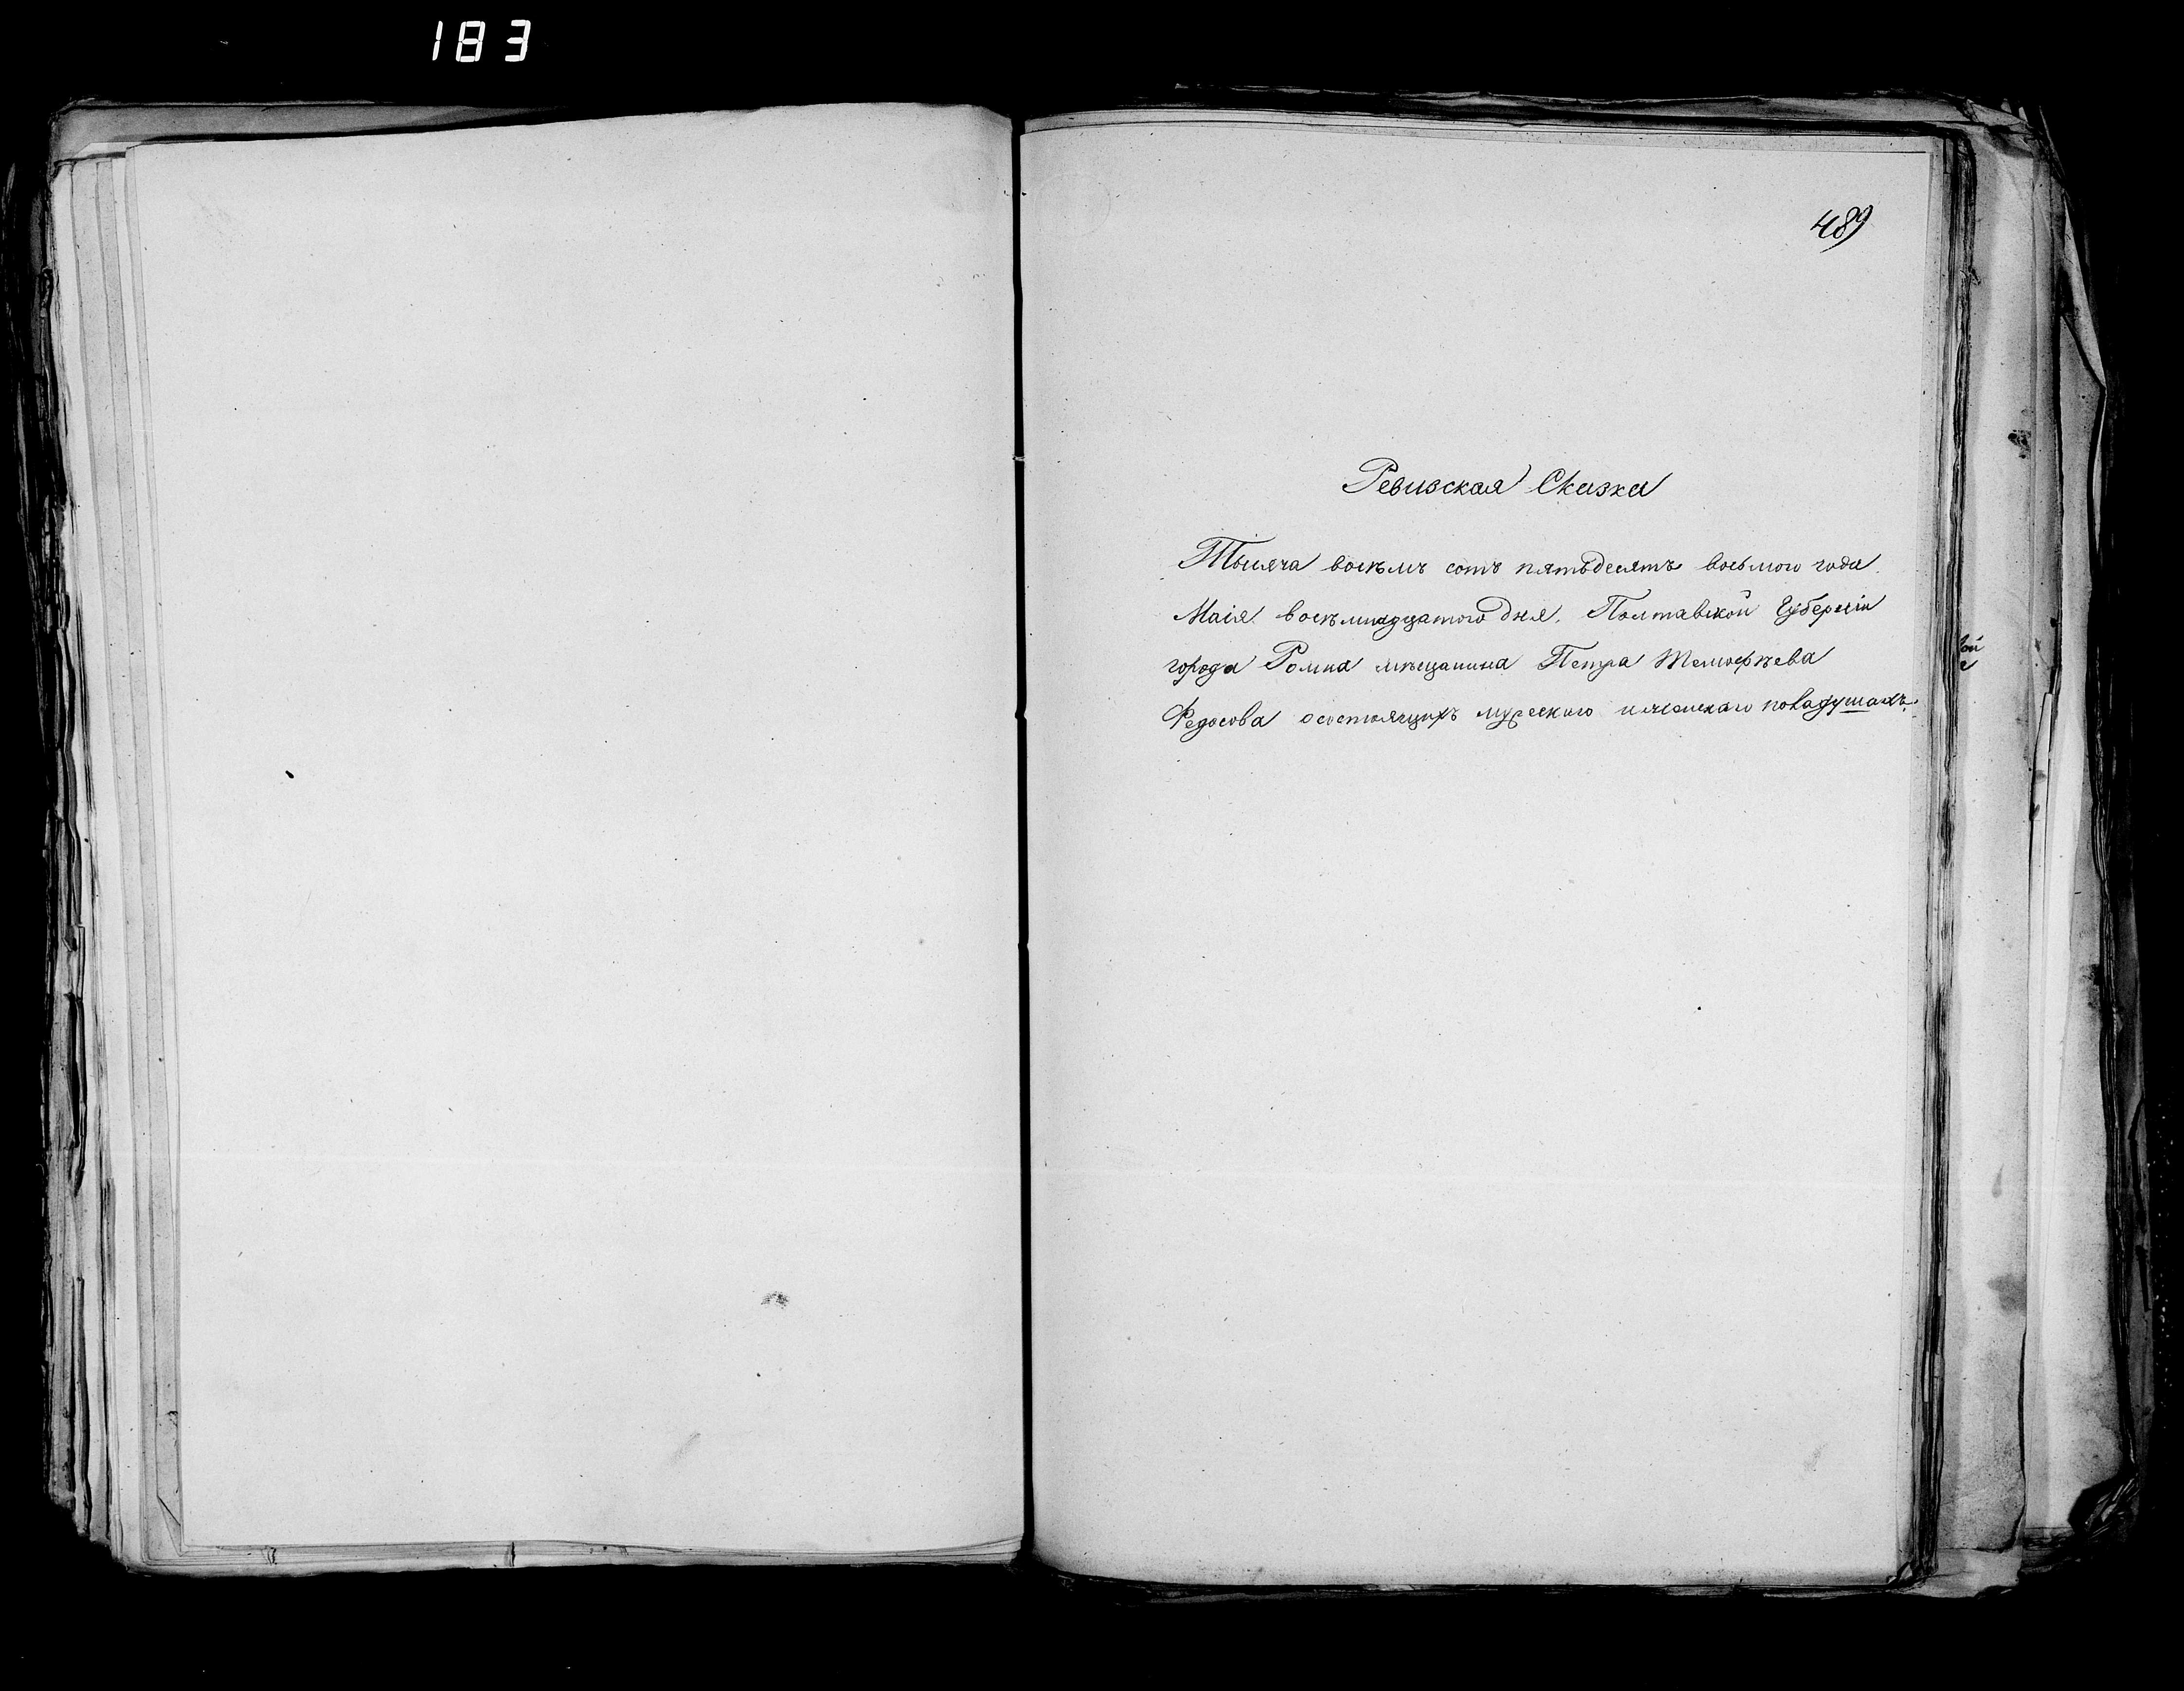 183
489
Ревизская Сказка
Тысяча восѣмъ сотъ пятьдесятъ восьмого года
Маія восѣмнадцатого дня. Полтавской Губерніи
города Ромна мѣщанина Петра
Федосова осостоящихъ мужеского иженскаго пола душахъ.